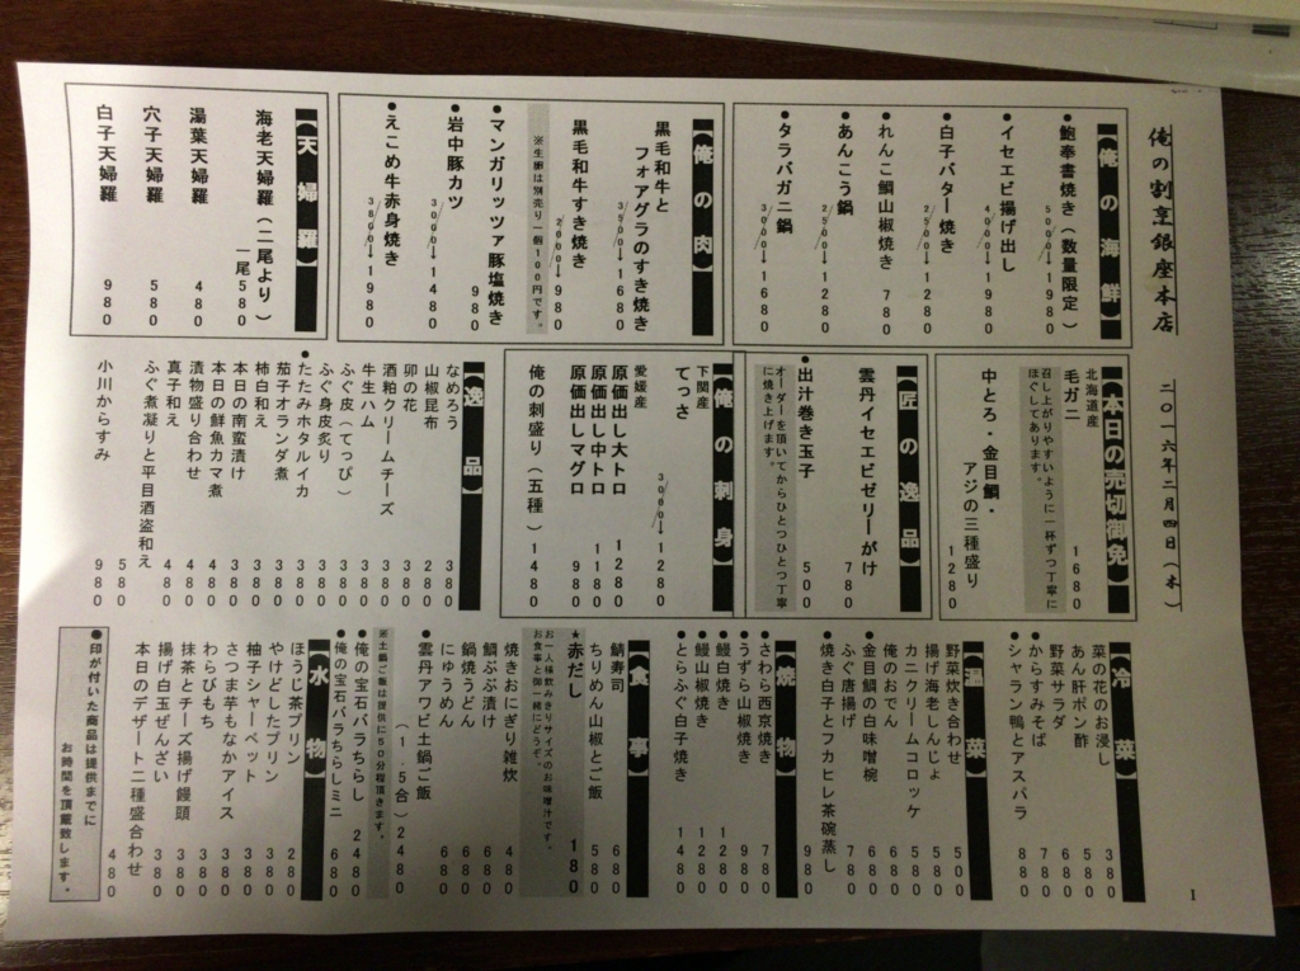 俺の割烹銀座本店
二〇一六年二月四日(木)
【俺の海鮮】
●鮑奉書焼き(数量限定)
5000→1980
●イセエビ揚げ出し
4000→1980
●白子バター焼き
2500→1280
れんこ鯛山椒焼き 780
●あんこう鍋
2500→1280
●タラバガニ鍋
3000→1680
【俺の肉】
黒毛和牛と
フォアグラのすき焼き
3500→1680
黒毛和牛すき焼き
2000→980
※生卵は別売り一個100円です。
●マンガリッツァ豚塩焼き
980
●岩中豚カツ
3000→1480
●えこめ牛赤身焼き
3800→1980
【天婦羅】
海老天婦羅(二尾より)
一尾580
湯葉天婦羅 480
穴子天婦羅 580
白子天婦羅 980
【本日の売切御免】
北海道産
毛ガニ 1680
召し上がりやすいように一杯ずつ丁寧に
ほぐしてあります。
中とろ・金目鯛・
アジの三種盛り
1280
【匠の逸品】
雲丹イセエビゼリーがけ
780
●出汁巻き玉子 500
オーダーを頂いてからひとつひとつ丁寧
に焼き上げます。
【俺の刺身】
下関産
てっさ
3000→1280
愛媛産
原価出し大トロ 1280
原価出し中トロ 1180
原価出しマグロ 980
俺の刺盛り(五種) 1480
【逸品】
なめろう 380
山椒昆布 280
卯の花 380
酒粕クリームチーズ 380
牛生ハム 380
ふぐ皮(てっぴ) 380
ふぐ身皮炙り 380
●たたみホタルイカ 380
茄子オランダ煮 380
柿白和え 380
本日の南蛮漬け 380
本日の鮮魚カマ煮 480
漬物盛り合わせ 480
真子和え 480
ふぐ煮凝りと平目酒盗和え
580
小川からすみ 980
【冷菜】
菜の花のお浸し 380
あん肝ポン酢 580
野菜サラダ 680
●からすみそば 780
●シャラン鴨とアスパラ 880
【温菜】
野菜炊き合わせ 500
揚げ海老しんじょ 580
カニクリームコロッケ 580
俺のおでん 680
●金目鯛の白味噌椀 680
ふぐ唐揚げ 780
●焼き白子とフカヒレ茶碗蒸し
980
【焼物】
●さわら西京焼き 780
●うずら山椒焼き 980
●鰻白焼き 1280
●鰻山椒焼き 1280
●とらふぐ白子焼き 1480
【食事】
鯖寿司 680
ちりめん山椒とご飯 580
★赤だし 180
お一人様飲みきりサイズのお味噌汁です。
お食事と御一緒にどうぞ。
焼きおにぎり雑炊 480
鯛ぶぶ漬け 680
鍋焼うどん 680
にゅうめん 680
●雲丹アワビ土鍋ご飯
(1.5合)2480
※土鍋ご飯は提供に50分程頂きます。
●俺の宝石バラちらし 2480
●俺の宝石バラちらしミニ 680
【水物】
ほうじ茶プリン 280
やけどしたプリン 380
柚子シャーベット 380
さつま芋もなかアイス 380
わらびもち 380
抹茶とチーズ揚げ饅頭 380
揚げ白玉ぜんざい 380
本日のデザート二種盛合わせ
480
●印が付いた商品は提供までに
お時間を頂戴致します。
1